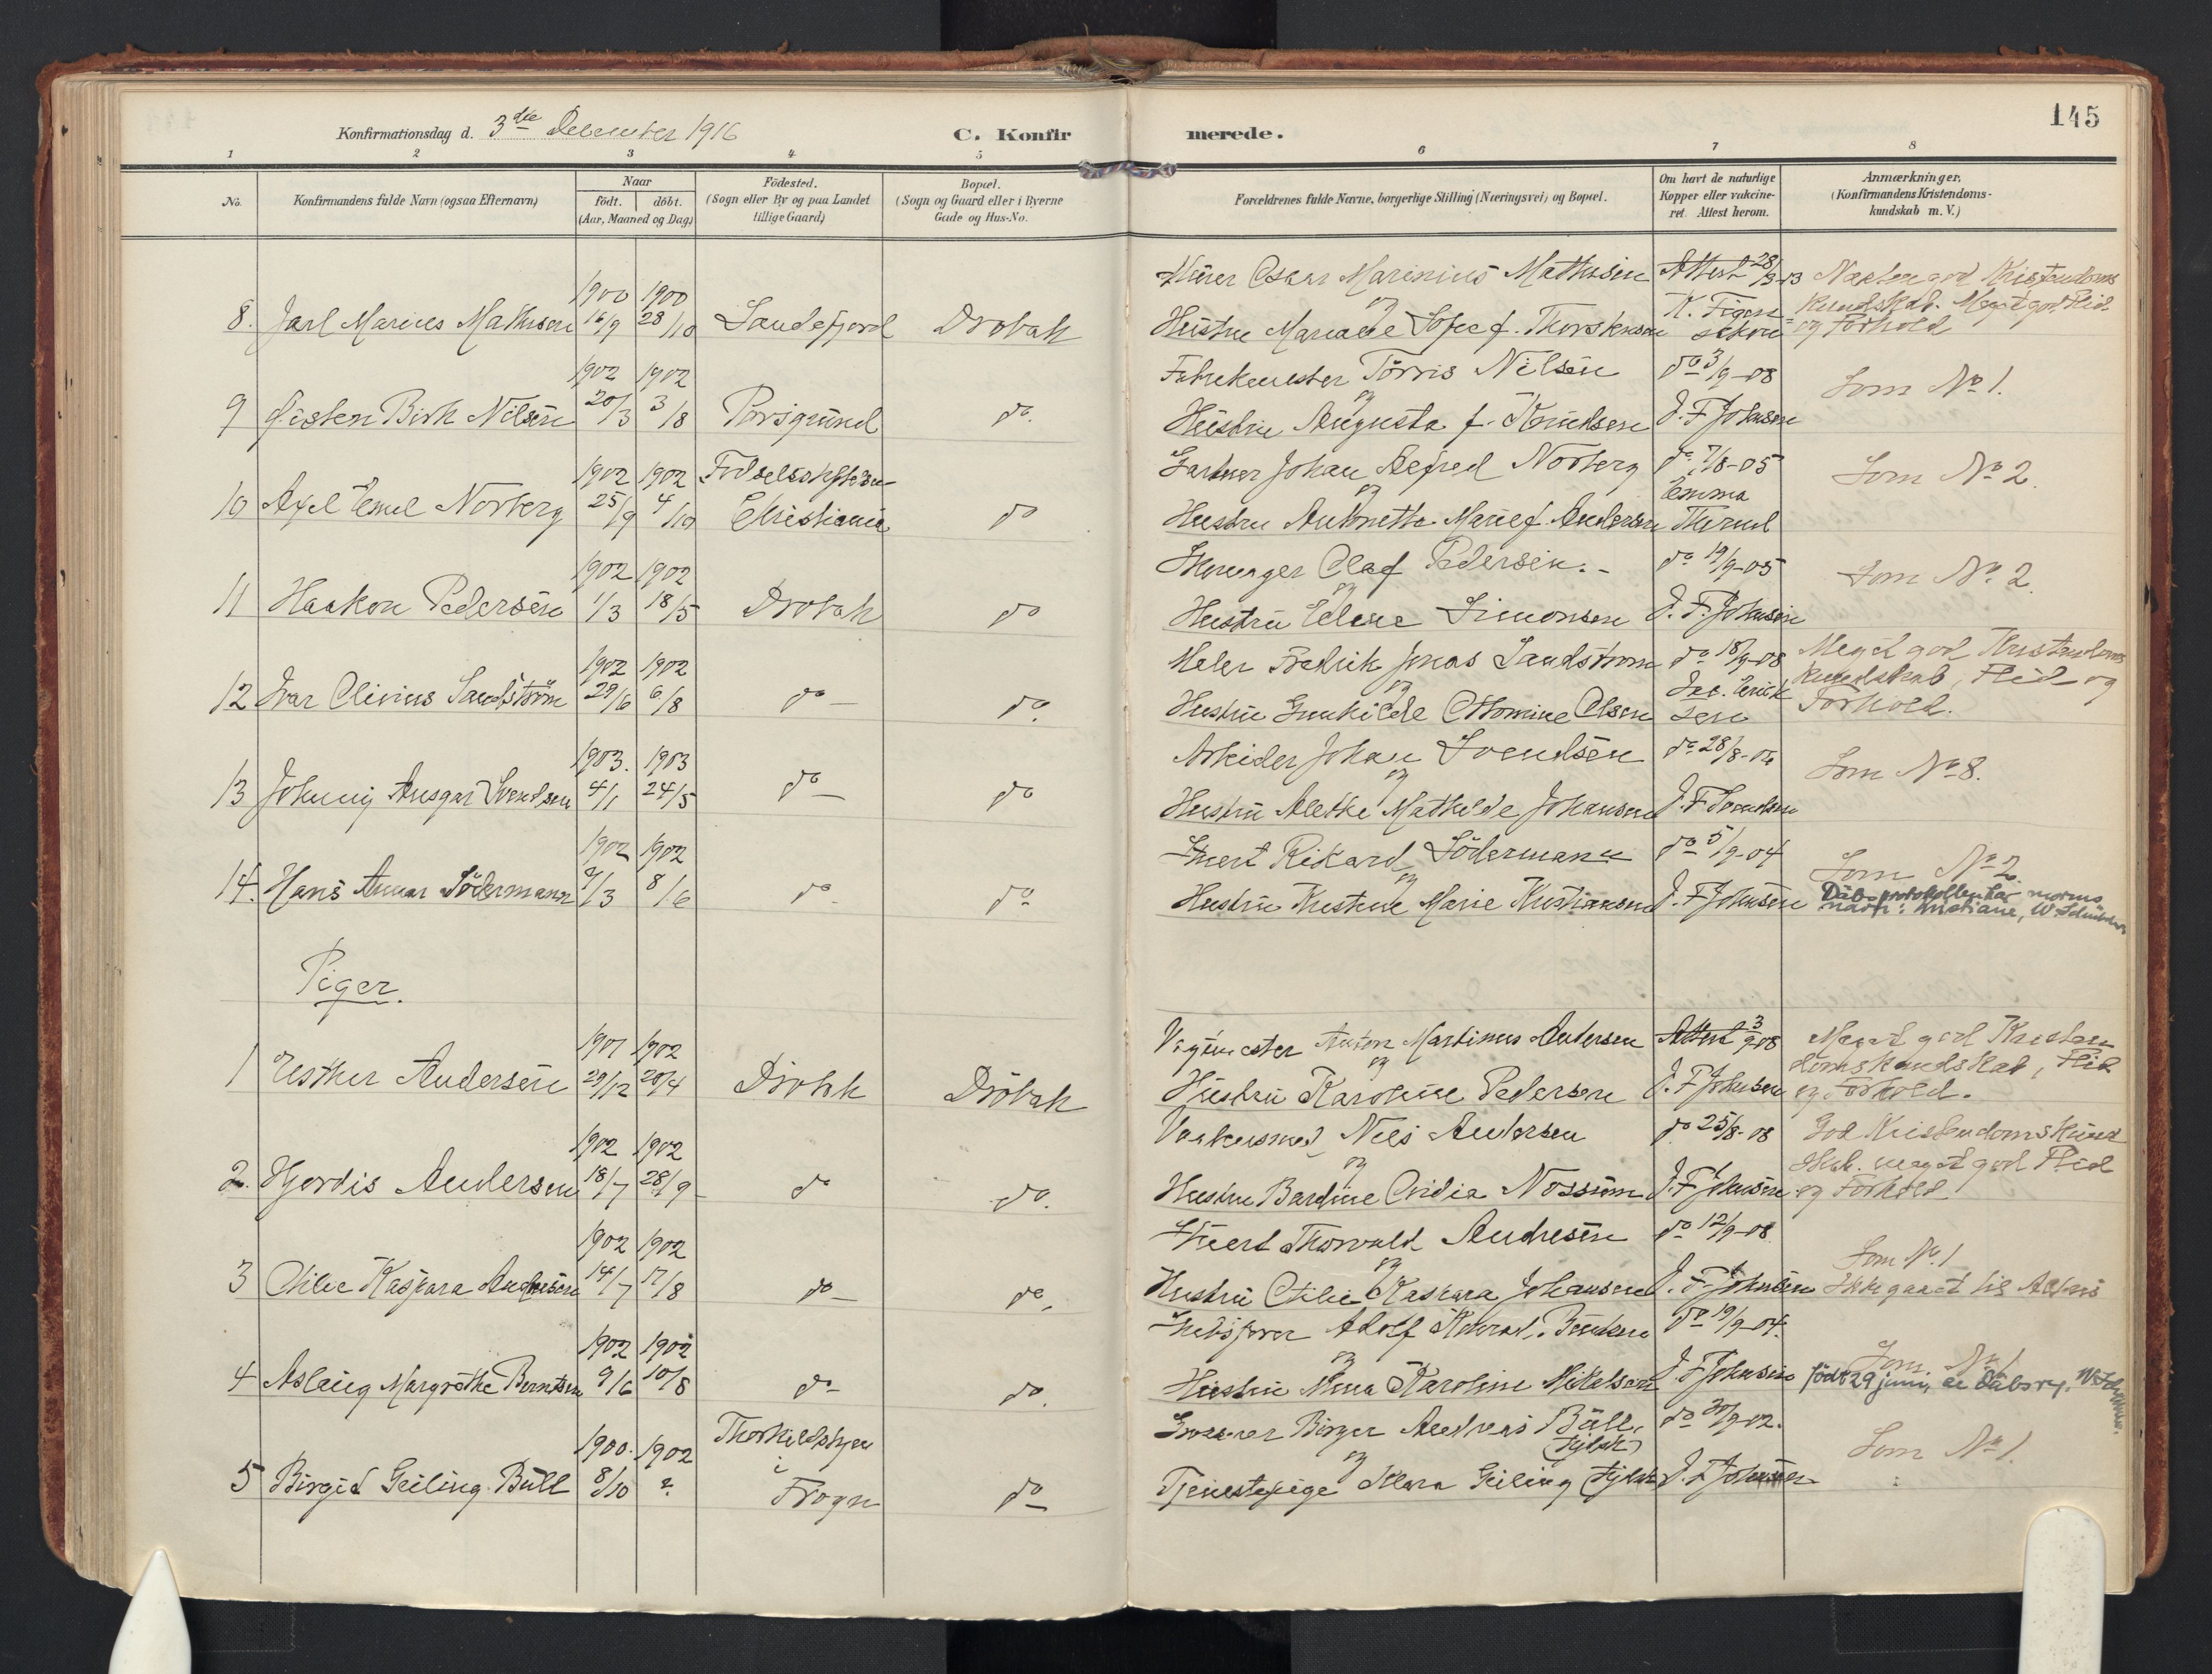 Konfirmationsdag d. 3die December 1916
C. Konfirmerede.
145
1 2 3 4 5 6 7 8
No.
Konfirmandens fulde Navn (ogsaa Efternavn)
Naar
födt. döbt.
(Aar, Maaned og Dag)
Födested.
(Sogn eller By og paa Landet
tillige Gaard)
Bopæl.
(Sogn og Gaard eller i Byerne
Gade og Hus-No.
Forældrenes fulde Navne, borgerlige Stilling (Næringsvei) og Bopæl.
Om havt de naturlige
Kopper eller vakcine-
ret. Attest herom.
Anmærkninger.
(Konfirmandens Kristendoms-
kundskab m. V.)
Murer Oscar Marinius Mathisen Attest 28/3-13 Næsten god Kristendoms
1900 1900
og
kundskab. Meget god Flid
8. Jarl Marius Mathisen 16/9 28/10 Sandefjord Drøbak
Hustru f. og Forhold
1902 1902
Fabrikmester Törris Nilsen do 3/9-08
Som No 1.
9 Øisten Birk Nilsen 20/3 3/8 Porsgrund do.
og
Hustru Augusta f. Knudsen J. F. Johnsen
1902 1902
Gartner Johan Alfred Norberg do 7/8-05
Som No 2.
10 Axel Emil Norberg 25/9 4/10 Christiania do
og
Emma
Hustru Antonette Marie f. Andersen Therud
1902 1902
Olaf Pedersen.- do 19/9-05
Som No. 2.
11 Haakon Pedersen 1/3 18/5 Drøbak do
og
Hustru Simonsen J. F. Johnsen
1902 1902
Maler Fredrik Jonas Sandstrøm do 18/9-08
Meget god Kristendoms
12 Ivar Olivius Sandstrøm 29/6 6/8 do do.
og
Kundskab, Flid og
Hustru Gunhilde Ottomine Olsen
Forhold.
1903. 1903
Arbeider Johan Svendsen do 28/8-06
Som No 8.
13 Johnny Ansgar Svendsen 4/1 24/5 do do
og
Hustru Alethe Mathilde Johansen
1902 1902
Rikard Södermann do 5/9-04
Som No 2.
14. Hans Annar Södermann /3 8/6 do do
og
Hustru Kristine Marie Kristiansen J. F. Johnsen
Dåbsprotokollen har morens
navn: Kristiane,
Piger.
1901 1902
Anton Martinus Andersen Attest 3/9-08
Meget god Kristen
1 Esther Andersen 29/12 20/4 Drøbak Drøbak
og
domskundskab, Flid
Hustru Karoline Pedersen J. F. Johnsen
og Forhold.
1902 1902
Nils Andersen do 25/8-08
God Kristendomskund
2. Hjordis Andersen 18/7 28/9 do do.
og
skab. meget god Flid
Hustru J. F. Johnsen og Forhold.
1902 1902
Thorvald Andresen do 12/9-08.
Som No. 1
3 Otilie Kaspara Andresen 14/7 17/8 do do.
og
Hustru Otilie Kaspara Johansen J. F. Johnsen Ikke gaaet til Alters
1902 1902
Adolf do 19/9-04.
Som No 1
4 Aslaug Margrethe Berntsen 9/6 10/8 do do.
og
Hustru Karoline Mikelsen J. F. Johnsen
födt 29 juni, se dåbsreg.
1900. 1902
Birger Andreas Büll, do 30/9-02.
(Ugift)
Som No 1.
5 Birgid Geiling Büll 8/10 ? i Frogn do
og
Tjenestepige Klara Geiling (Ugift) J. F. Johnsen